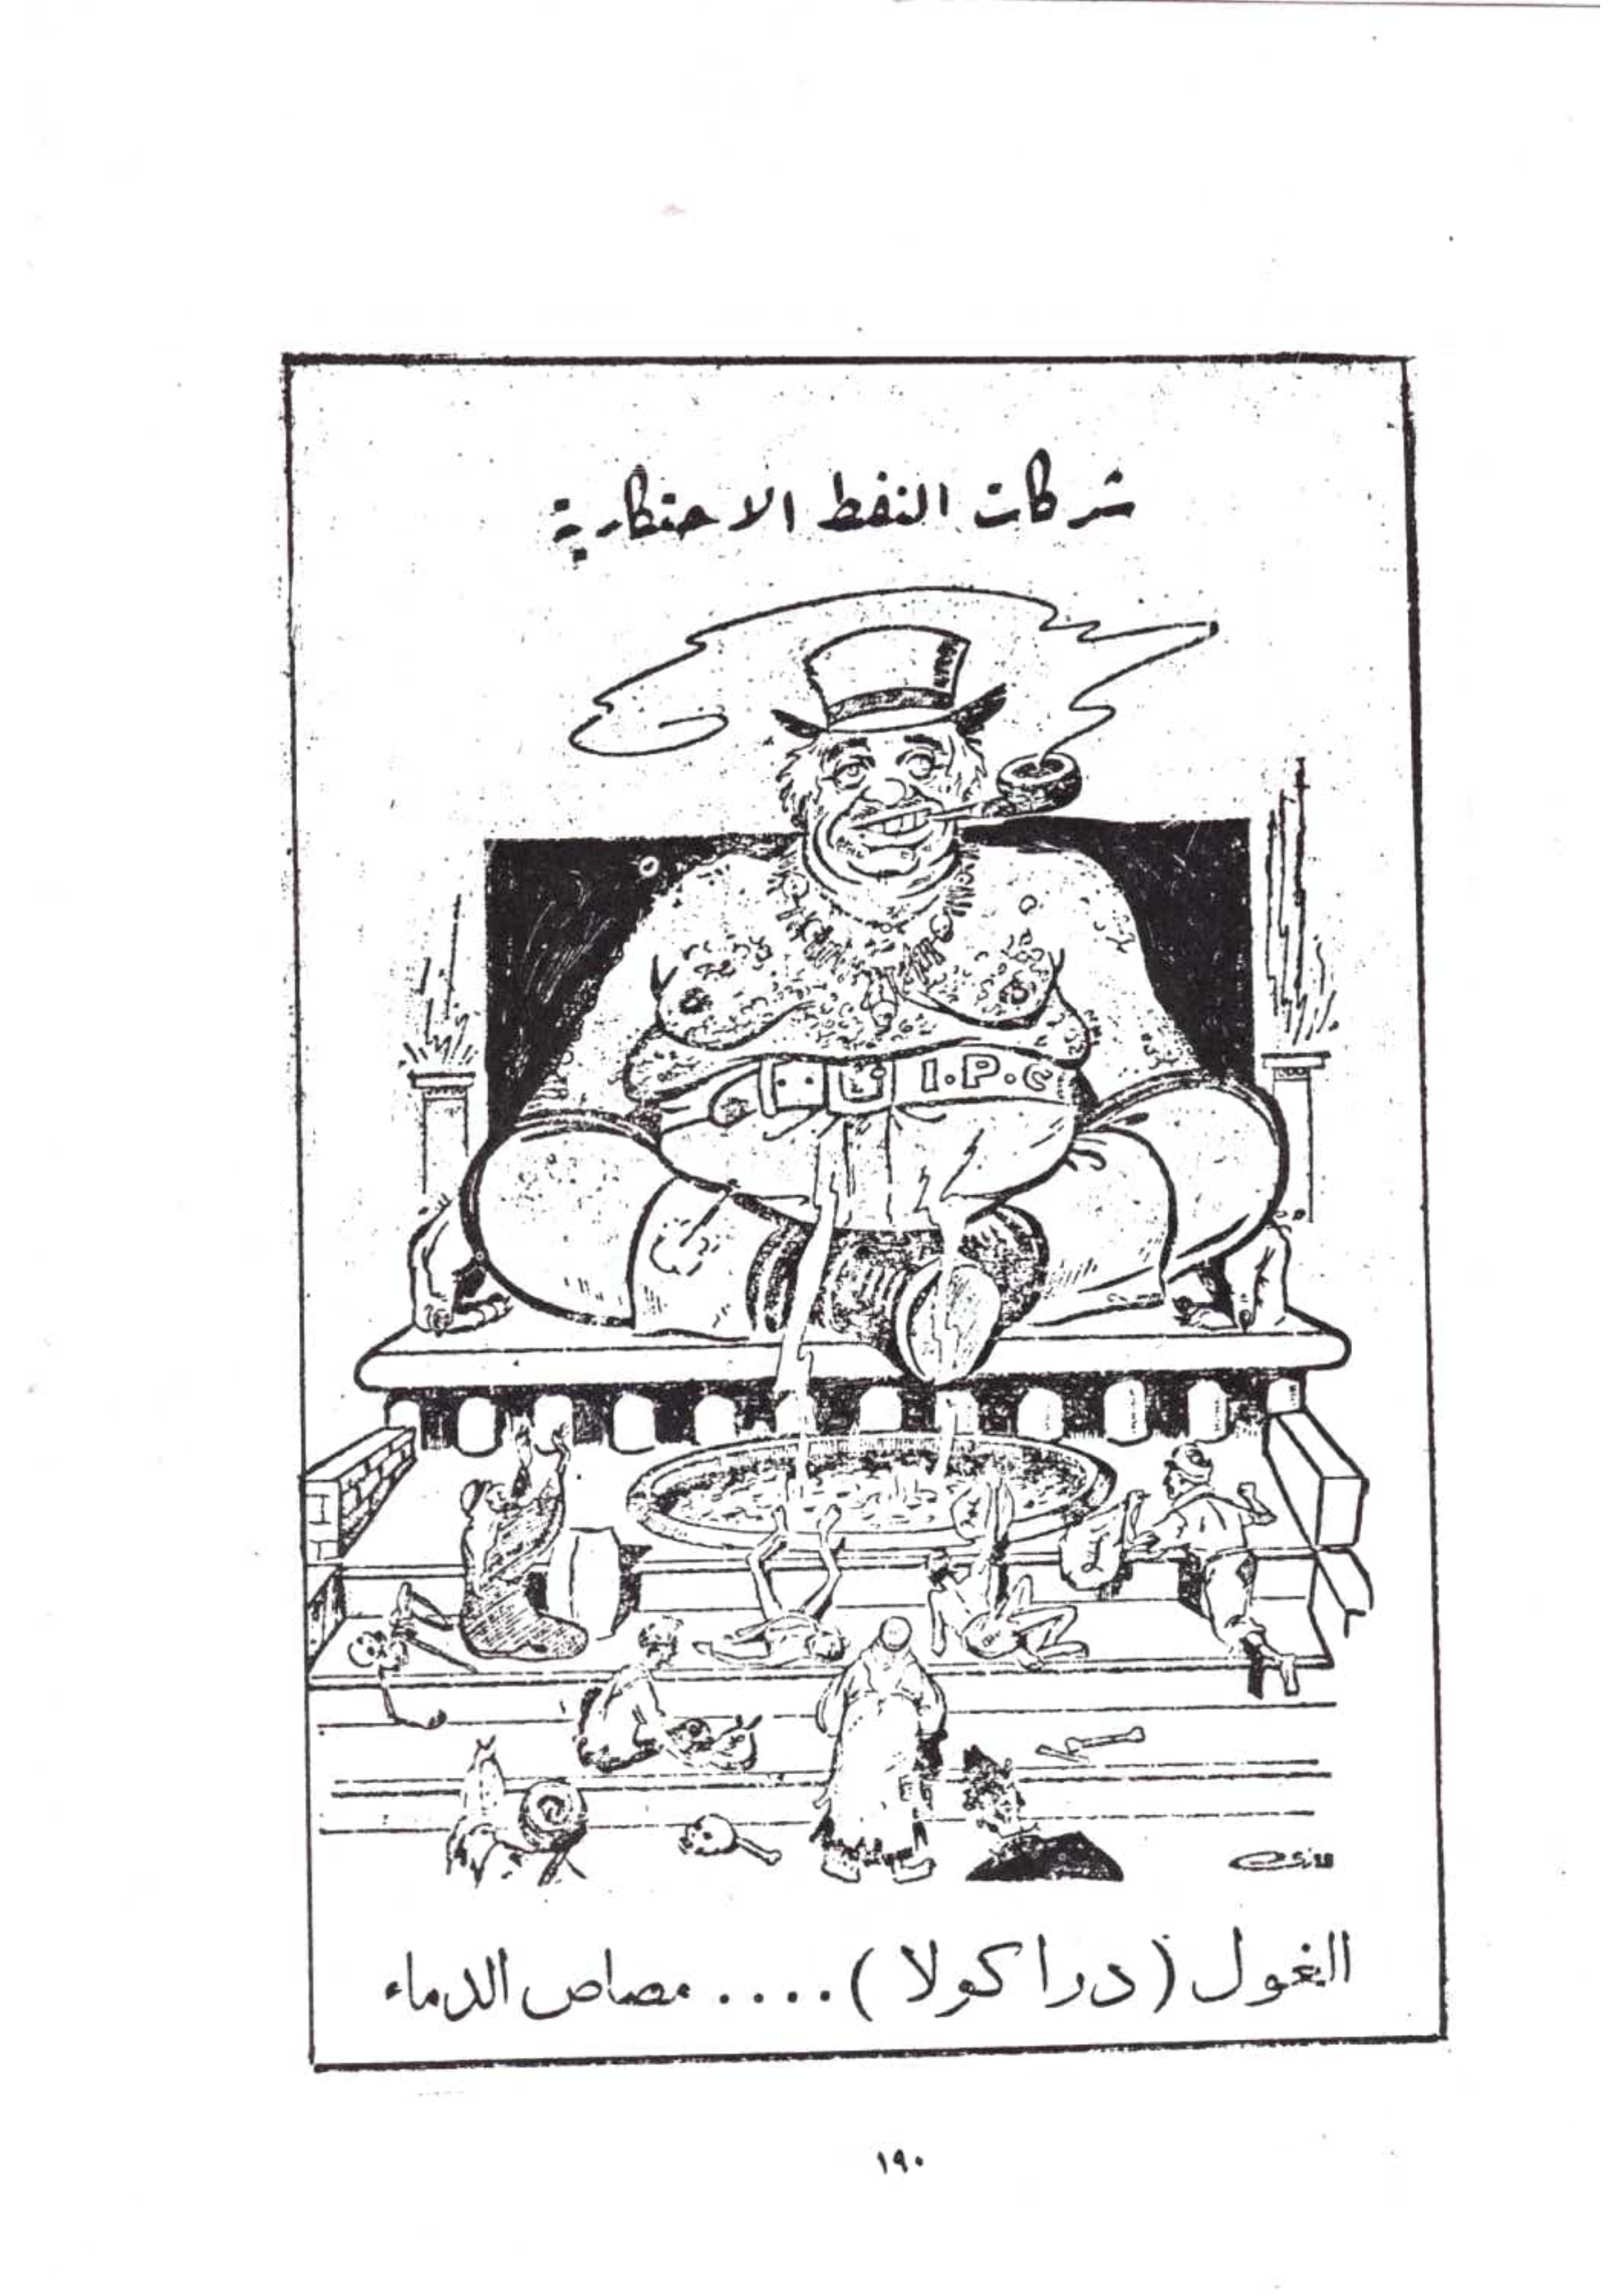 شركات النفط الاحتكارية
I.P.C
الغول (دراكولا) .... مصاص الدماء
١٩٠